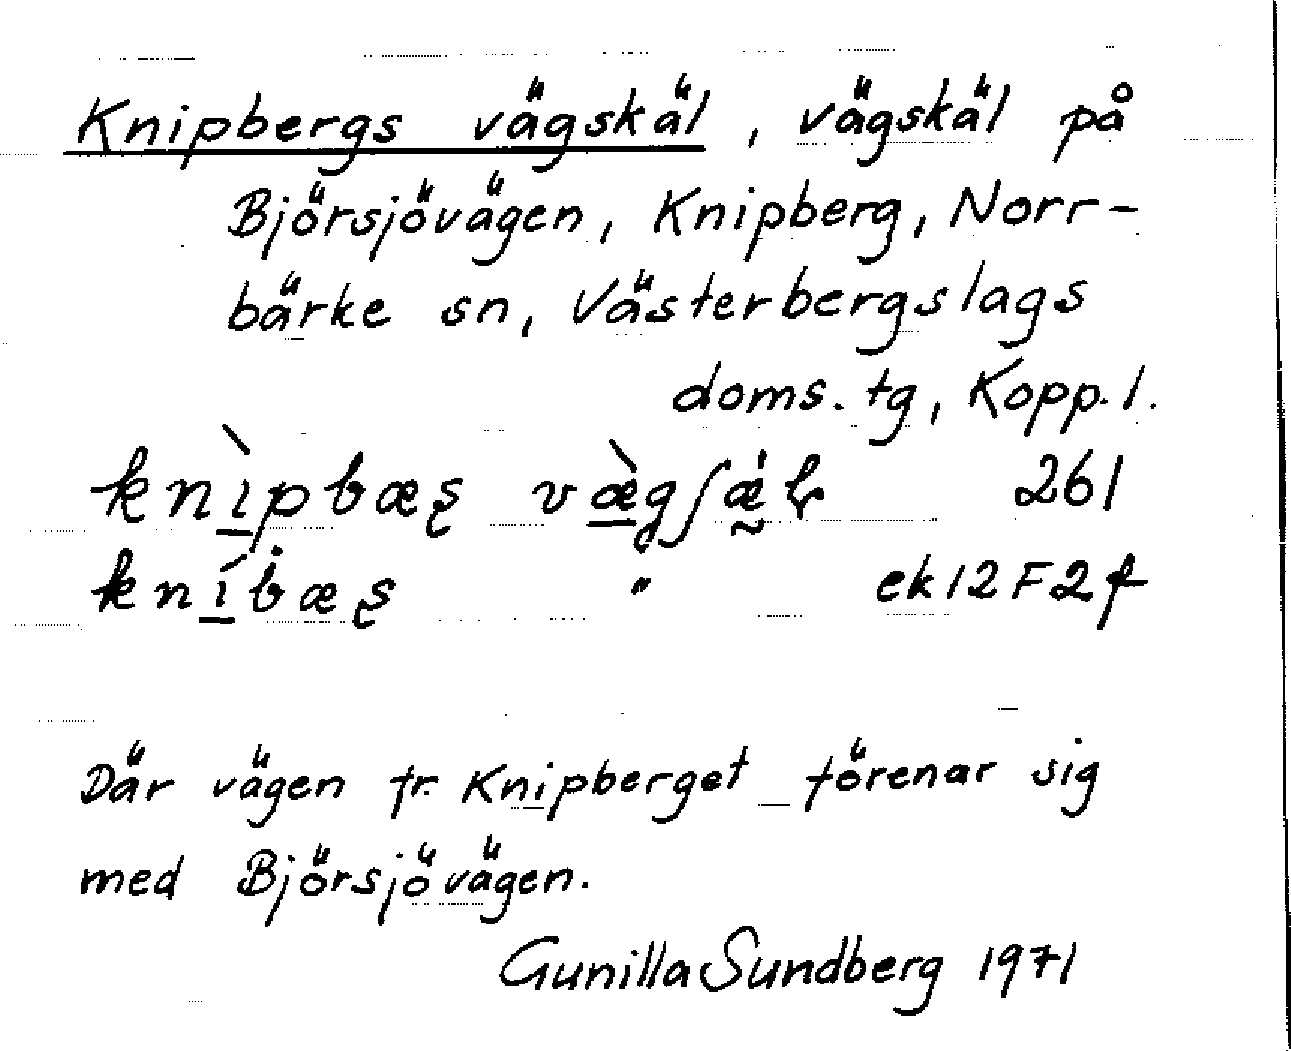 Knipbergs vägskäl, vägskäl på
Björsjövägen, Knipberg, Norr-
bärke sn, Västerbergslags
doms. tg, Kopp. l.
261
" ek 12 F 2 f
Där vägen fr. Knipberget förenar sig
med Björsjövägen.
Gunilla Sundberg 1971